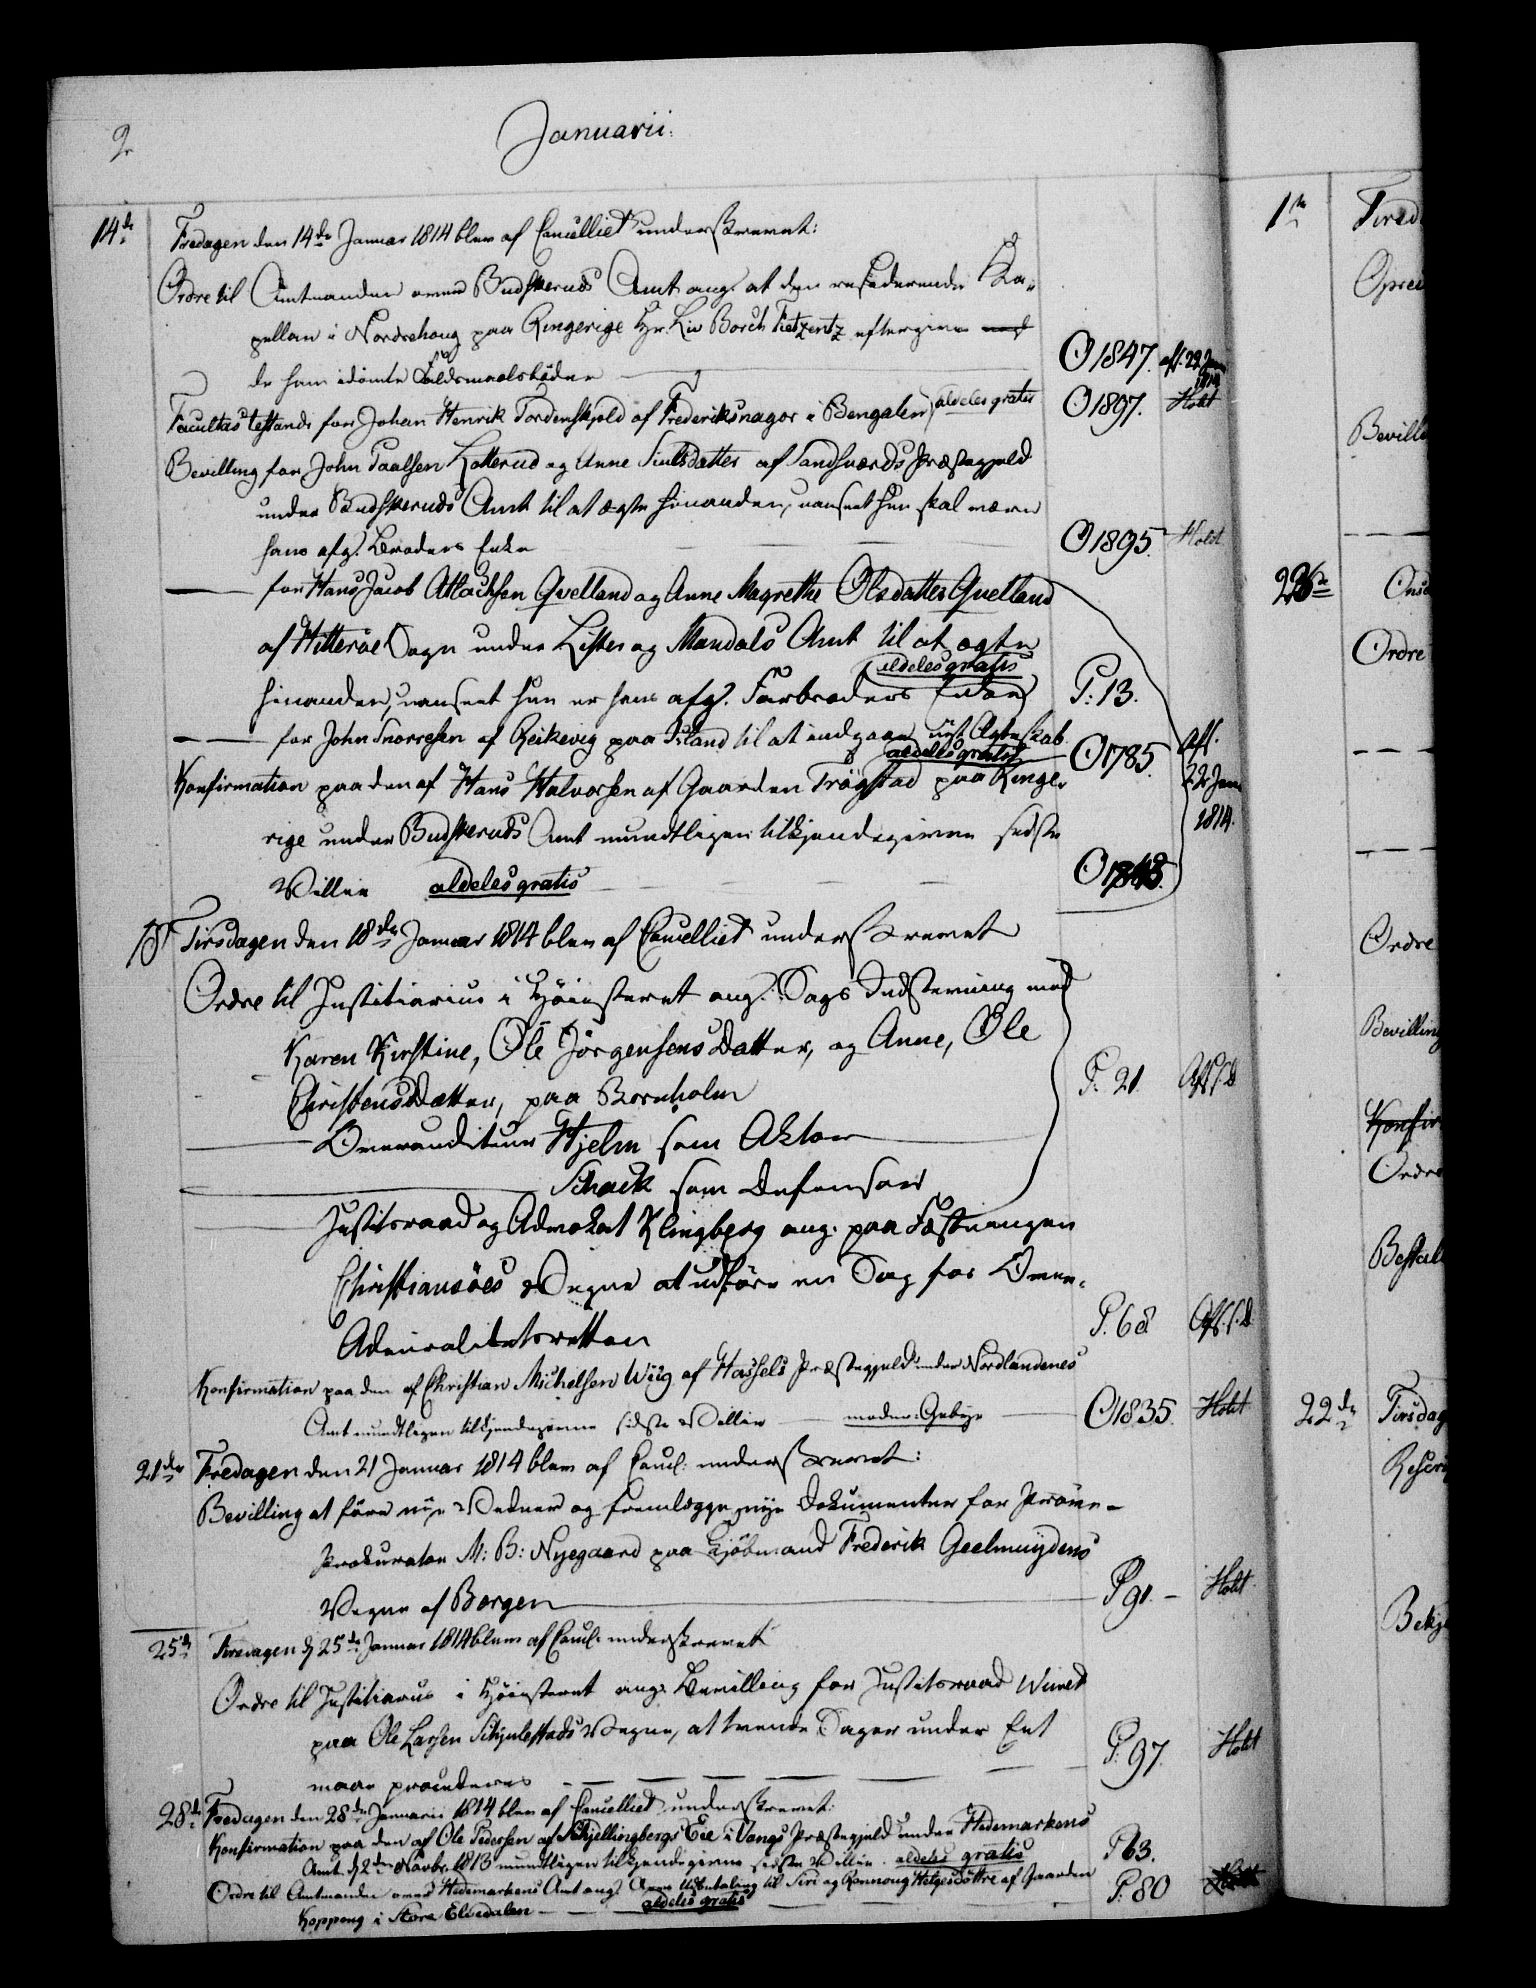 2
Januarii.
14de Fredagen den 14de Januar 1814 blev af Cancelliet underskrevet:
Ordre til Amtmanden over Budskeruds Amt ang. at den residerende Ka-
pellan i Nordrehoug paa Ringerige Hr. Liv Borch Fietzentz eftergives
de ham idømte Faldsmaalsbøder O 1847. aff. 22 Jan 1814
Facultas testandi for Johan Henrik Tordenskjold af Frederiksnagor i Bengalen aldeles gratis O 1897. Holdt
Bevilling for John Paalsen Kolterud og Anne Siulsdatter af Sandsværds Præstegjeld
under Budskeruds Amt til at ægte hinanden, uanseet hun skal være
hans afg. Broders Enke O 1895. Holdt
— for Hans Jacob Atlachsen Qvelland og Anne Magrethe Olsdatter Qvelland
af Hitterøe Sogn under Lister og Mandals Amt til at ægte
aldeles gratis
hinanden, uanseet hun er hans afg. Farbroders Enke P. 13.
— for John Snorresen af Reikevig paa Island til at indgaae nyt Ægteskab O 1785. Aff.
aldeles gratis
Konfirmation paa den af Hans Halvorsen af Gaarden Trøgstad paa Ringe- 22 Jan
rige under Budskeruds Amt mundtligen tilkjendegivne sidste 1814.
Villie aldeles gratis
18 Tirsdagen den 18de Januar 1814 blev af Cancelliet underskrevet
Ordre til Justitiarius i Høiesteret ang. Sags Indstevning mod
Karen Kirstine, Ole Jørgensens Datter, og Anne, Ole
Christens Datter, paa Bornholm P. 21. Aff. s. D.
— Overauditeur Hjelm som Aktor
— Schack som Defensor
— Justitsraad og Advokat Klingberg ang. paa Fæstningen
Christiansøes Vegne at udføre en Sag for Over-
Admiralitetsretten P. 68 Aff. s. D.
Konfirmation paa den af Christian Michelsen Wiig af Hassels Præstegjeld under Nordlandenes
Amt mundtligen tilkjendegivne sidste Villie — moder: Gebyr — O 1835. Holdt
21de Fredagen den 21 Januar 1814 blev af Canc. underskrevet:
Bevilling at føre nye Vidner og fremlægge nye Dokumenter for Prøve-
Prokurator M: B: Nyegaard paa Kjøbmand Frederik Geelmuydens
Vegne af Bergen P. 91. — Holdt
25de Tirsdagen d 25de Januar 1814 blev af Canc. underskrevet
Ordre til Justitiarius i Høiesteret ang. Bevilling for Justitsraad
paa Ole Larsen Vegne, at tvende Sager under Eet
maae procederes P. 97. Holdt
28de Fredagen den 28de Januarii 1814 blev af Cancelliet underskrevet:
Konfirmation paa den af Ole Pedersen af Skjellingbergs Eie i Vangs Præstegjeld under Hedemarkens
Amt d 2de Novbr. 1813 mundtligen tilkjendegivne sidste Villie. aldeles gratis P. 63.
Ordre til Amtmanden over Hedemarkens Amt ang. Arvs Udbetaling til Siri og Rønnoug Helgesdøttre af Gaarden P. 80
Koppang i Store Elvedalen — aldeles gratis
1te
Tirsd
Opreis
Bevilli
Onsd
Ordre
Ordre
Bevilling
Konfir
Ordre
Bestal
22de Tirsdag
Rescri
Bekj